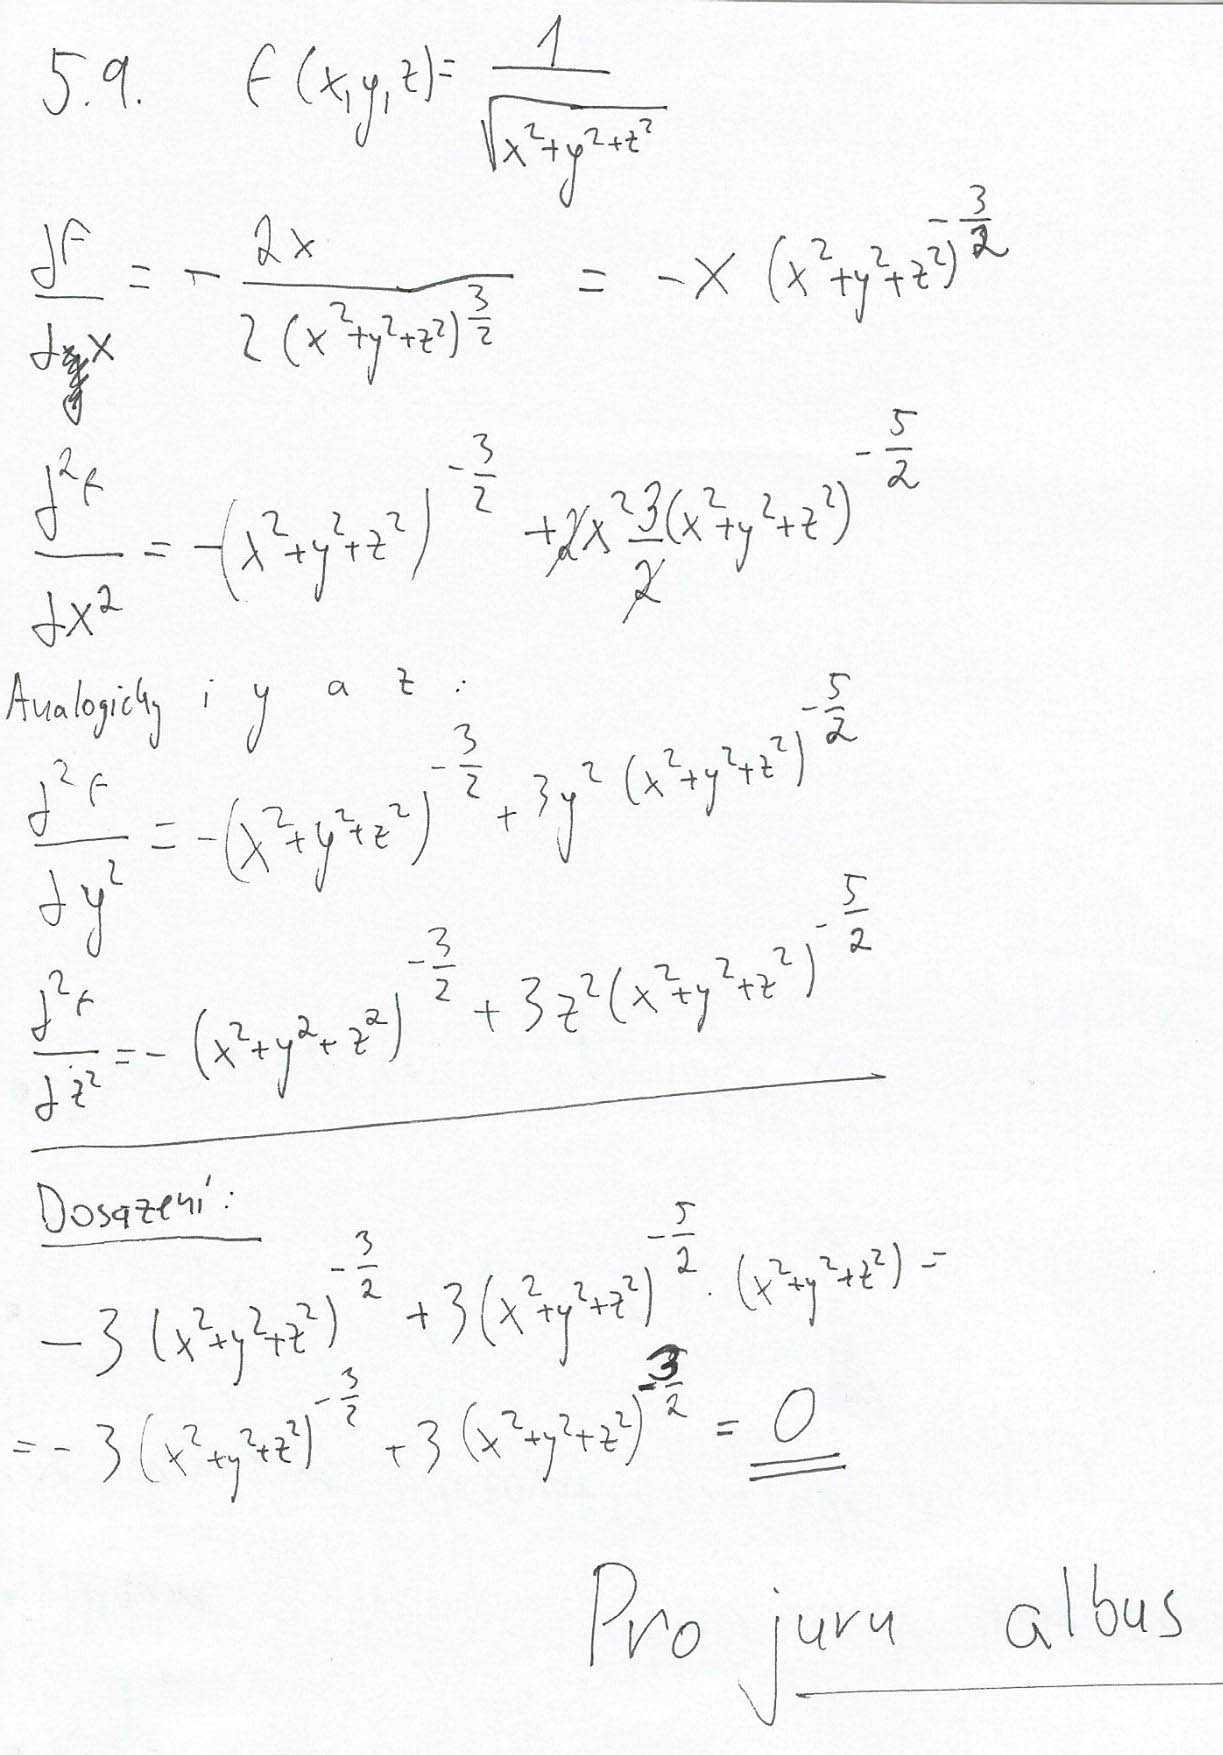 5.9. f(x,y,z) = 1/√(x²+y²+z²)
df/dx = - 2x/(2(x²+y²+z²)^(3/2)) = -x (x²+y²+z²)^(-3/2)
d²f/dx² = -(x²+y²+z²)^(-3/2) + 2x² 3/2 (x²+y²+z²)^(-5/2)
Analogicky i y a z :
d²f/dy² = -(x²+y²+z²)^(-3/2) + 3y² (x²+y²+z²)^(-5/2)
d²f/dz² = - (x²+y²+z²)^(-3/2) + 3z² (x²+y²+z²)^(-5/2)
Dosazení:
-3 (x²+y²+z²)^(-3/2) + 3(x²+y²+z²)^(-5/2) · (x²+y²+z²) =
= -3 (x²+y²+z²)^(-3/2) + 3 (x²+y²+z²)^(-3/2) = 0
Pro juru albus